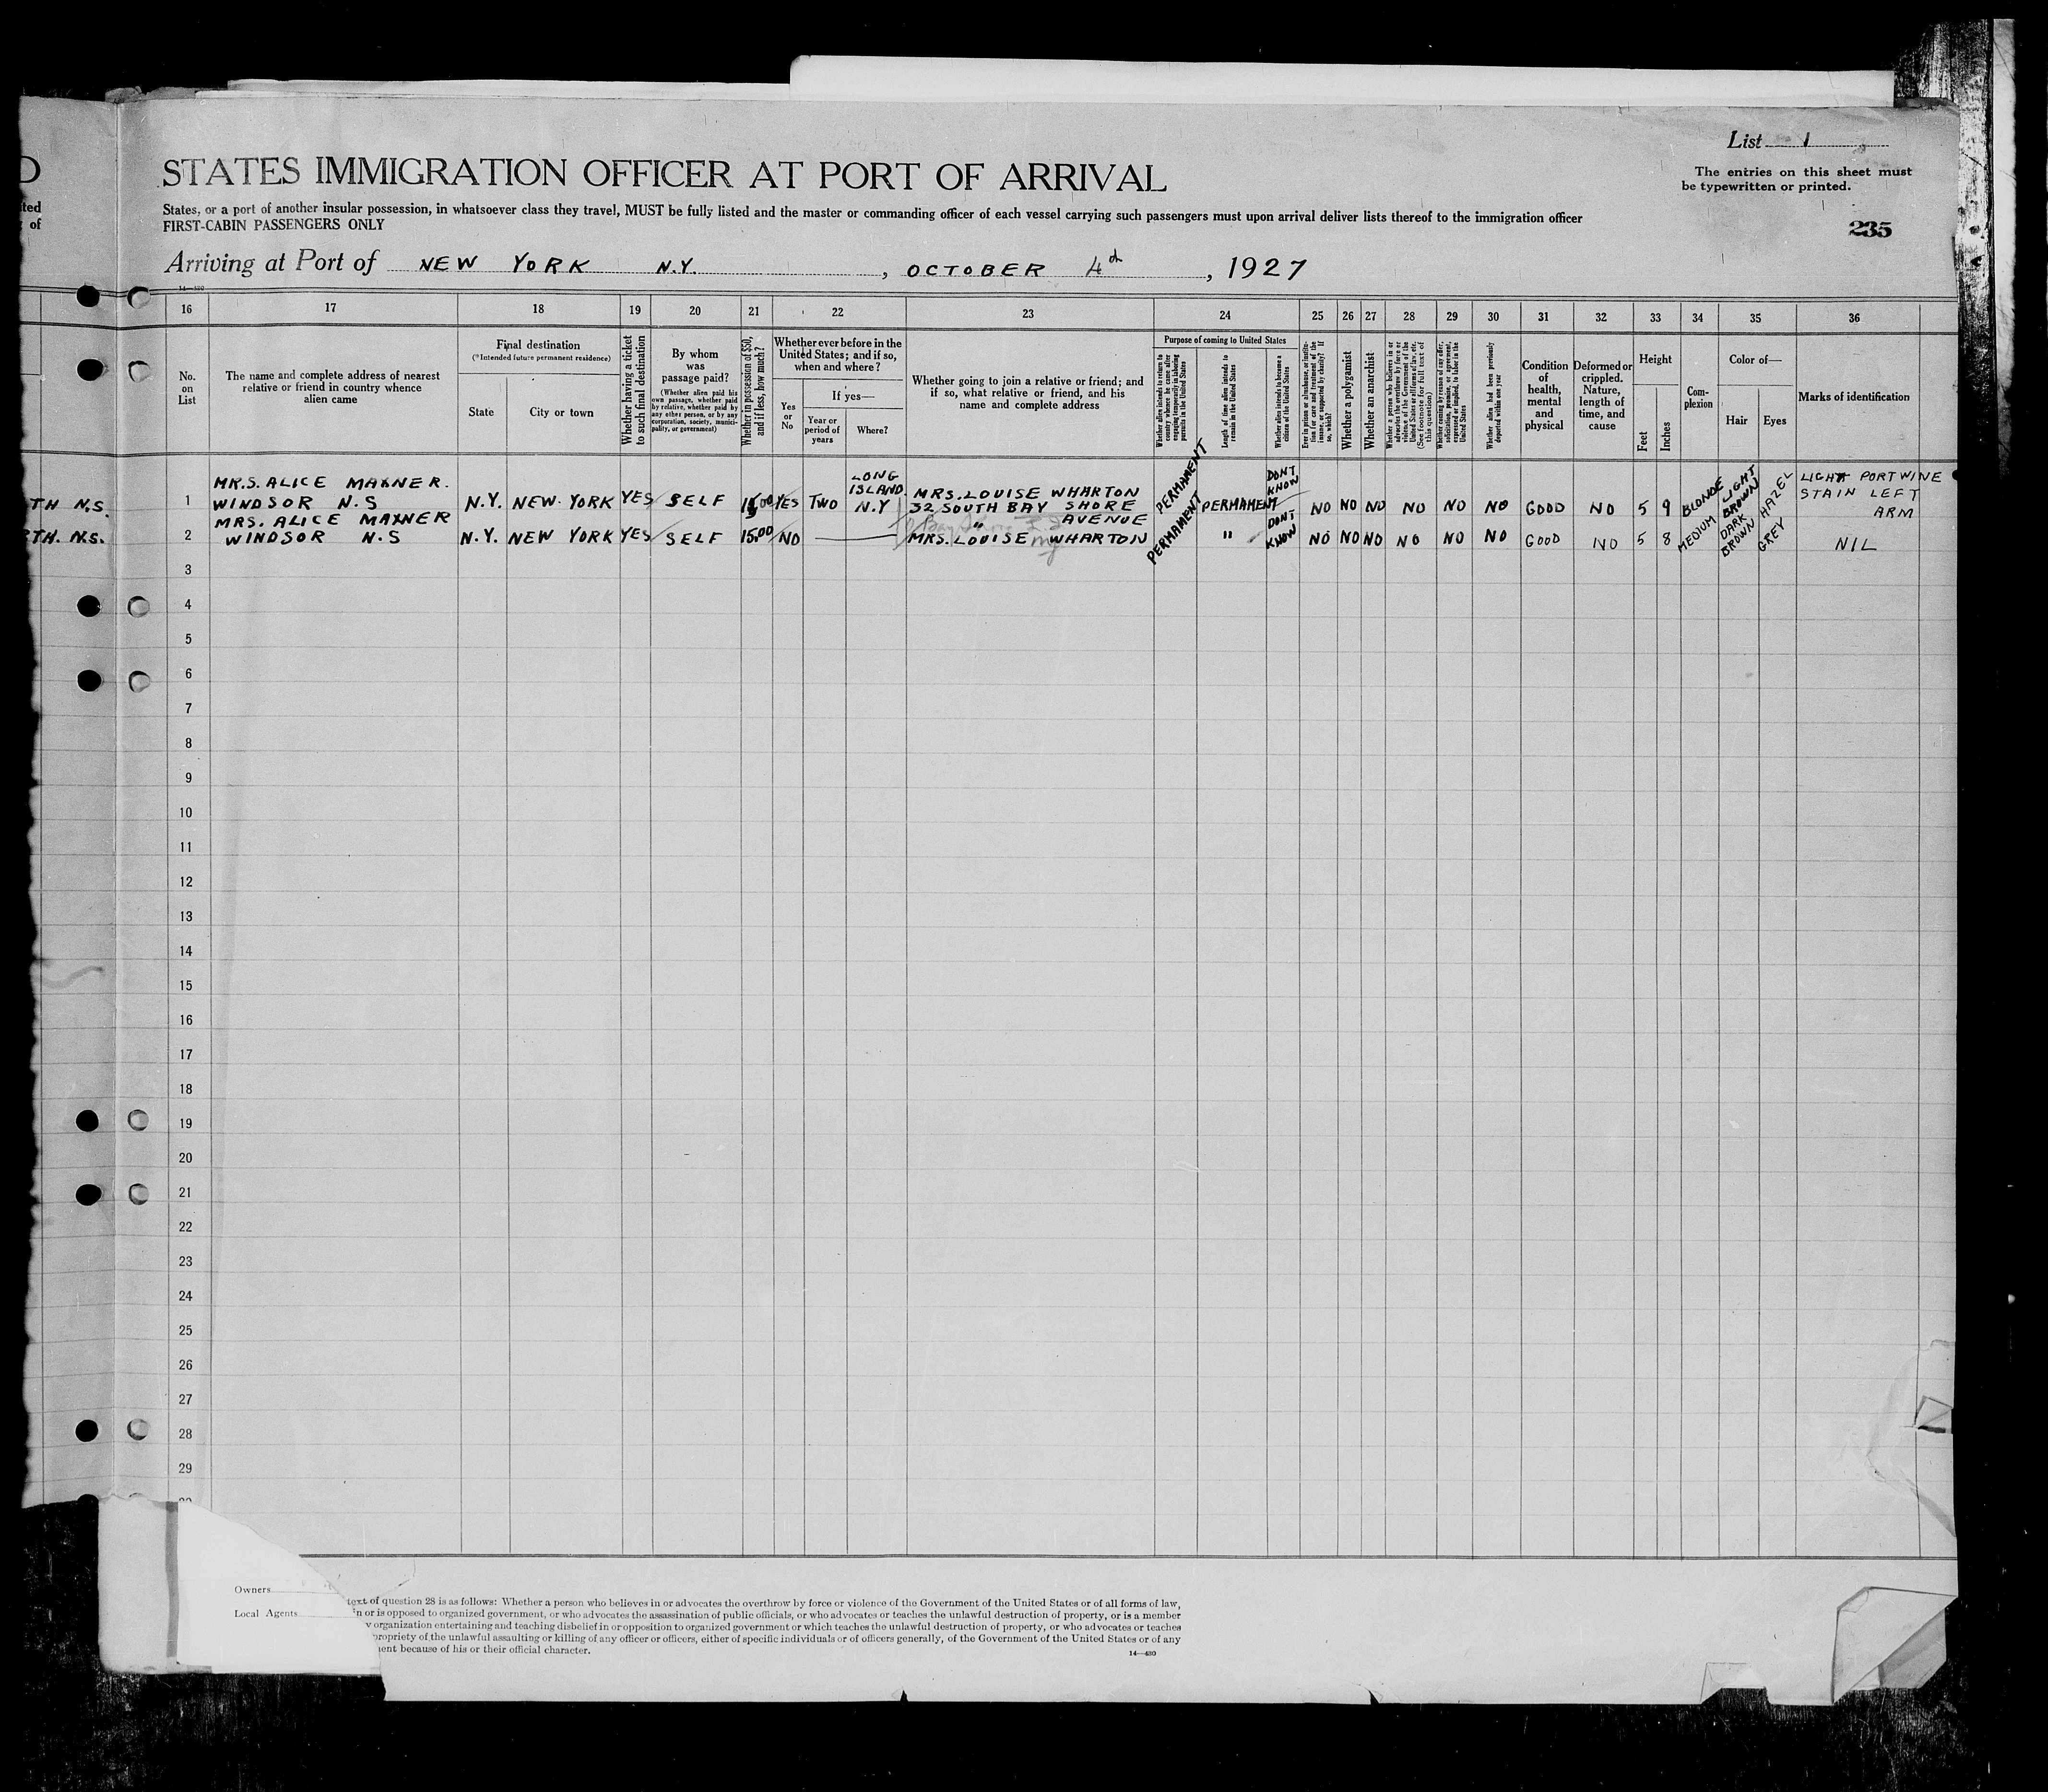 List 1
The entries on this sheet must
be typewritten or printed.
235
D
ted
of
STATES IMMIGRATION OFFICER AT PORT OF ARRIVAL
States, or a port of another insular possession, in whatsoever class they travel, MUST be fully listed and the master or commanding officer of each vessel carrying such passengers must upon arrival deliver lists thereof to the immigration officer
FIRST-CABIN PASSENGERS ONLY
Arriving at Port of NEW YORK N.Y. , OCTOBER 4th , 1927
14—430
16 17 18 19 20 21 22 23 24 25 26 27 28 29 30 31 32 33 34 35 36
No.
on
List
The name and complete address of nearest
relative or friend in country whence
alien came
Final destination
(*Intended future permanent residence)
State
City or town
Whether having a ticket
to such final destination
By whom
was
passage paid?
(Whether alien paid his
own passage, whether paid
by relative, whether paid by
any other person, or by any
corporation, society, munici-
pality, or government)
Whether in possession of $50,
and if less, how much?
Whether ever before in the
United States; and if so,
when and where?
Yes
or
No
If yes—
Year or
period of
years
Where?
Whether going to join a relative or friend; and
if so, what relative or friend, and his
name and complete address
Purpose of coming to United States
Whether alien intends to return to
country whence he came after
engaging temporarily in laboring
pursuits in the United States
Length of time alien intends to
remain in the United States
Whether alien intends to become a
citizen of the United States
Ever in prison or almshouse, or institu-
tion for care and treatment of the
insane, or supported by charity? If
so, which?
Whether a polygamist
Whether an anarchist
Whether a person who believes in or
advocates the overthrow by force or
violence of the Government of the
United States or all forms of law, etc.
(See footnote for full text of
this question)
Whether coming by reason of any offer,
solicitation, promise, or agreement,
expressed or implied, to labor in the
United States
Whether alien had been previously
deported within one year
Condition
of
health,
mental
and
physical
Deformed or
crippled.
Nature,
length of
time, and
cause
Height
Feet
Inches
Com-
plexion
Color of—
Hair
Eyes
Marks of identification
TH N.S. 1 MRS. ALICE MAXNER. WINDSOR N.S N.Y. NEW YORK YES SELF 15.00 YES TWO LONG ISLAND. N.Y MRS. LOUISE WHARTON 32 SOUTH BAY SHORE AVENUE PERMAMENT PERMAMENT DONT KNOW NO NO NO NO NO NO GOOD NO 5 9 BLONDE LIGHT BROWN HAZEL LIGHT PORTWINE STAIN LEFT ARM
TH. N.S. 2 MRS. ALICE MAXNER WINDSOR N.S N.Y. NEW YORK YES SELF 15.00 NO " MRS. LOUISE WHARTON PERMAMENT " DONT KNOW NO NO NO NO NO NO GOOD NO 5 8 MEDIUM DARK BROWN GREY NIL
3
4
5
6
7
8
9
10
11
12
13
14
15
16
17
18
19
20
21
22
23
24
25
26
27
28
29
Owners
Local Agents
text of question 28 is as follows: Whether a person who believes in or advocates the overthrow by force or violence of the Government of the United States or of all forms of law,
in or is opposed to organized government, or who advocates the assassination of public officials, or who advocates or teaches the unlawful destruction of property, or is a member
y organization entertaining and teaching disbelief in or opposition to organized government or which teaches the unlawful destruction of property, or who advocates or teaches
propriety of the unlawful assaulting or killing of any officer or officers, either of specific individuals or of officers generally, of the Government of the United States or of any
ent because of his or their official character.
14—430